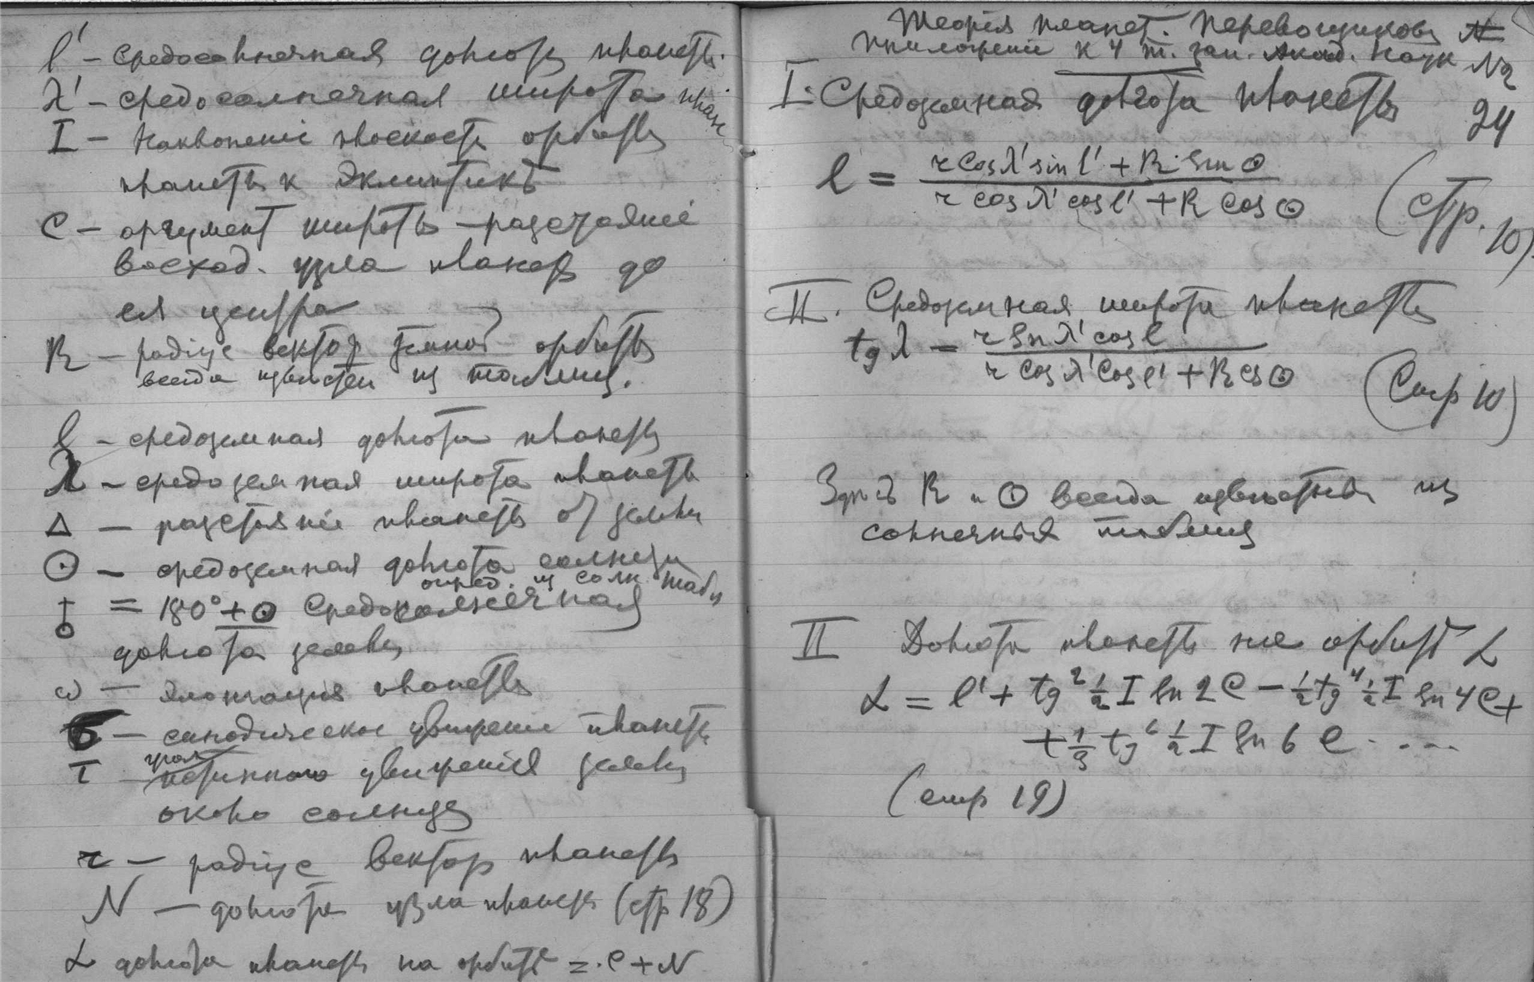 l' — средосолнечная долгота планеты.
λ' — средосолнечная широта план
I — Наклоненіе плоскости орбиты
планеты к эклиптикѣ
С — аргумент широты — разстояніе
восход. узла планеты до
ея центра
R — радіус вектор земной орбиты
всегда извѣстен из таблиц.
l — средоземная долгота планеты
λ — средоземная широта планеты
Δ — разстояніе планеты от земли
⊙ — средоземная долгота солнца
опред. из солн. табл
♁ = 180° + ⊙ Средосолнечная
долгота земли
ω — элонгація планеты
Б — синодическое движеніе планеты
T — движенія земли
около солнца
r — радіус вектор планеты
N — долгота узла планеты (стр 18)
L долгота планеты на орбитѣ = С + N
Теорія планет. Перевощиков
приложеніе к 4 т. зап. Акад. Наук №2
I. Средоземная долгота планеты 24
l = r cos λ' sin l' + R sin ⊙ / r cos λ' cos l' + R cos ⊙ (стр. 10).
II. Средоземная широта планеты
tg λ = r sn λ' cos l / r cos λ' cos l' + R cs ⊙ (стр 10)
Здѣсь R и ⊙ всегда извѣстны из
солнечных таблиц
II Долгота планеты на орбитѣ L
L = l' + tg² ½ I sn 2С − ½ tg⁴ ½ I sn 4С +
+ ⅓ tg⁶ ½ I sn 6 С ....
(стр 19)